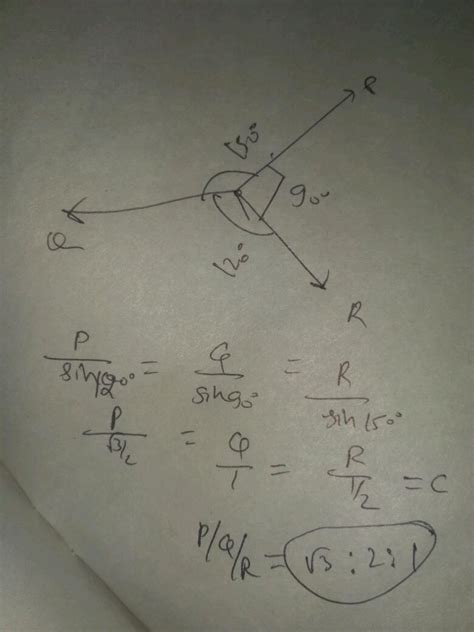 P
150°
90°
Q
120°
R
P/sin120° = Q/sin90° = R/sin150°
P/√3/2 = Q/1 = R/1/2 = C
P/Q/R = √3 : 2 : 1